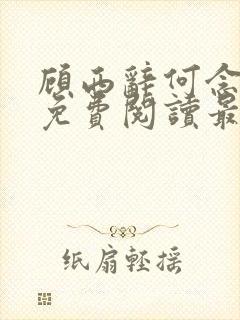 顾西辭何念
免費閱讀最
纸扇輕摇